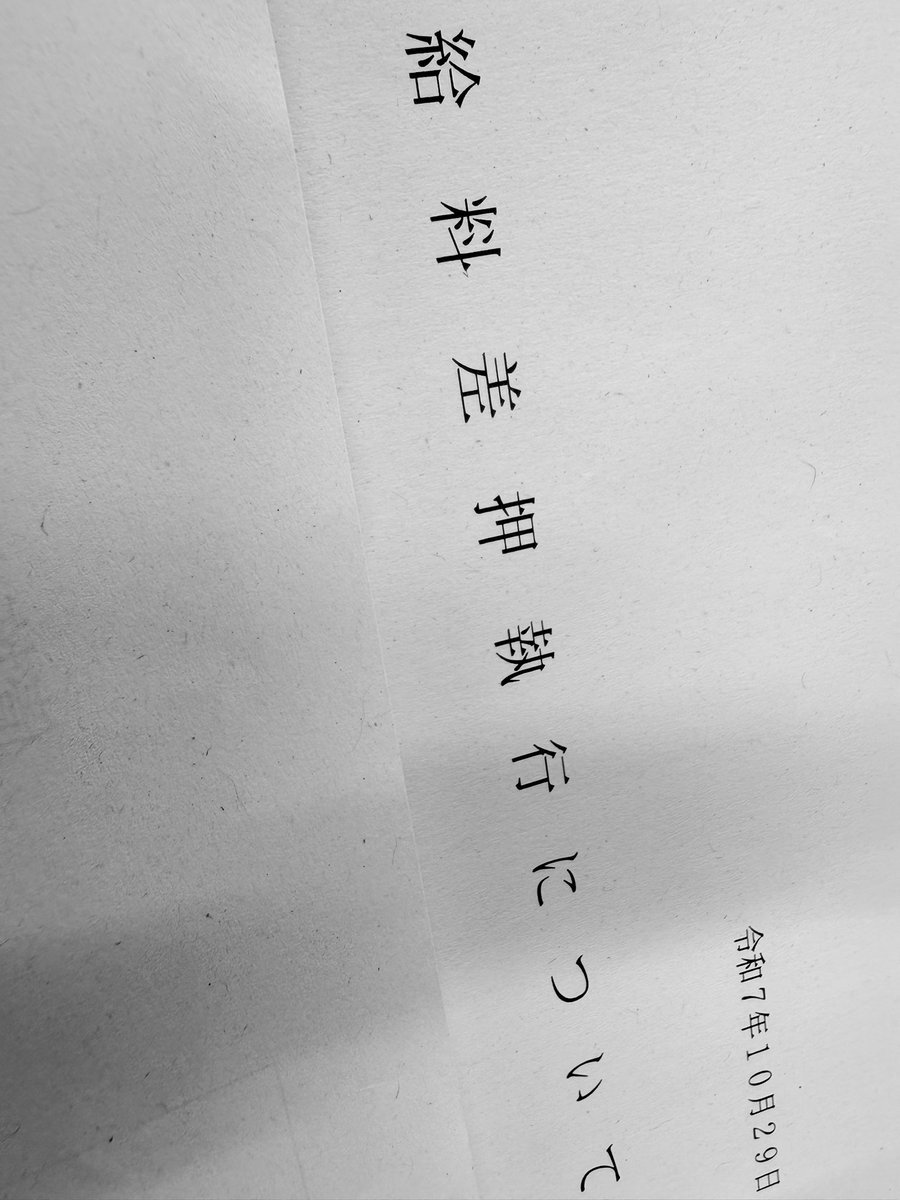 令和7年10月29日
給料差押執行について